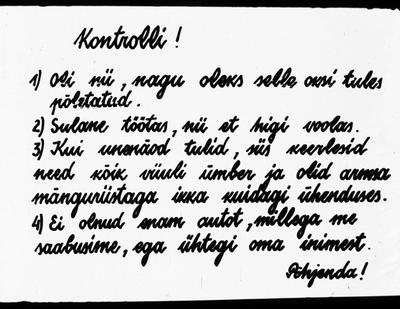 Kontrolli!
1) Oli nii, nagu oleks selle orsi tules
põletatud.
2) Sulane töötas, nii et higi voolas.
3) Kui unenäod tulid, siis keerlesid
need kõik viiuli ümber ja olid armsa
mänguriistaga ikka kuidagi ühenduses.
4) Ei olnud enam autot, millega me
saabusime, ega ühtegi oma inimest.
Põhjenda!